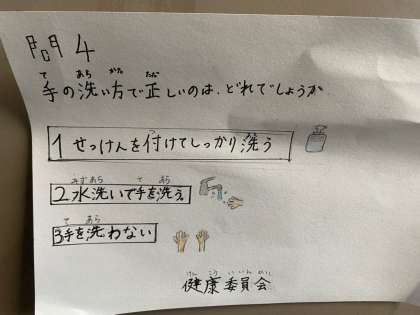 問4
手の洗い方で正しいのは、どれでしょうか
1 せっけんを付けてしっかり洗う
2 水洗いで手を洗う。
3 手を洗わない
健康委員会